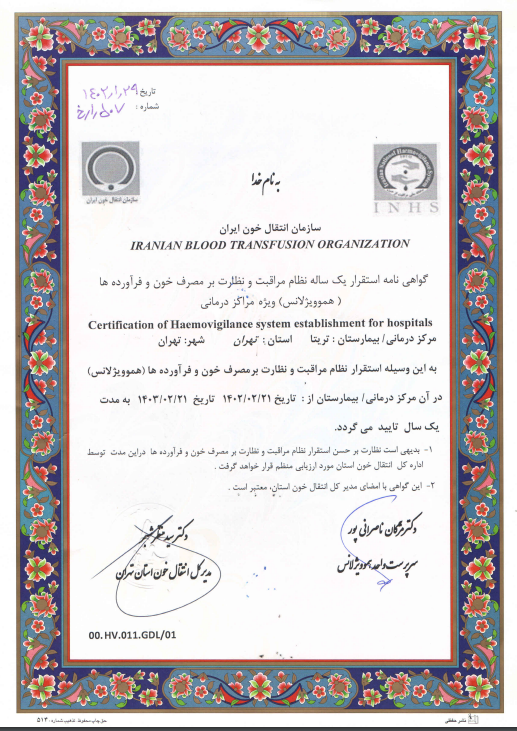 تاریخ: ۱۴۰۲/۱/۲۹
شماره:
سازمان انتقال خون ایران
به نام خدا
Iranian National Haemovigilance System
INHS
سازمان انتقال خون ایران
IRANIAN BLOOD TRANSFUSION ORGANIZATION
گواهی نامه استقرار یک ساله نظام مراقبت و نظارت بر مصرف خون و فرآورده ها
( هموویژلانس) ویژه مراکز درمانی
Certification of Haemovigilance system establishment for hospitals
مرکز درمانی/ بیمارستان : تریتا استان : تهران شهر: تهران
به این وسیله استقرار نظام مراقبت و نظارت برمصرف خون و فرآورده ها (هموویژلانس)
در آن مرکز درمانی/ بیمارستان از : تاریخ ۱۴۰۲/۰۲/۲۱ تاریخ ۱۴۰۳/۰۲/۲۱ به مدت
یک سال تایید می گردد.
۱- بدیهی است نظارت بر حسن استقرار نظام مراقبت و نظارت بر مصرف خون و فرآورده ها دراین مدت توسط
اداره کل انتقال خون استان مورد ارزیابی منظم قرار خواهد گرفت .
۲- این گواهی با امضای مدیر کل انتقال خون استان، معتبر است .
دکتر مژگان ناصرانی پور
سرپرست واحد هموویژلانس
دکتر سید
مدیر کل انتقال خون استان تهران
00.HV.011.GDL/01
نشر حافظی
حق چاپ محفوظ. تذهیب شماره: ۵۱۳